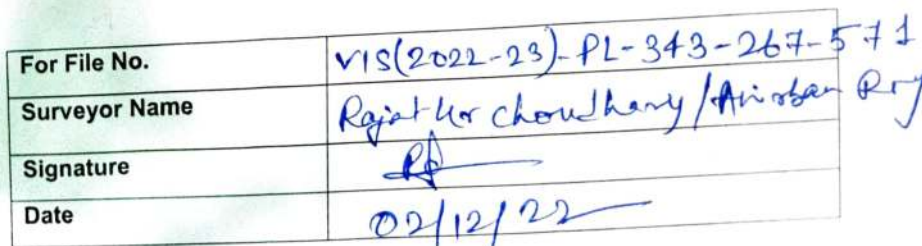 For File No. VIS(2022-23)-PL-343-267-571
Surveyor Name Rajat Kr Choudhary / Anirban Roy
Signature
Date 02/12/22